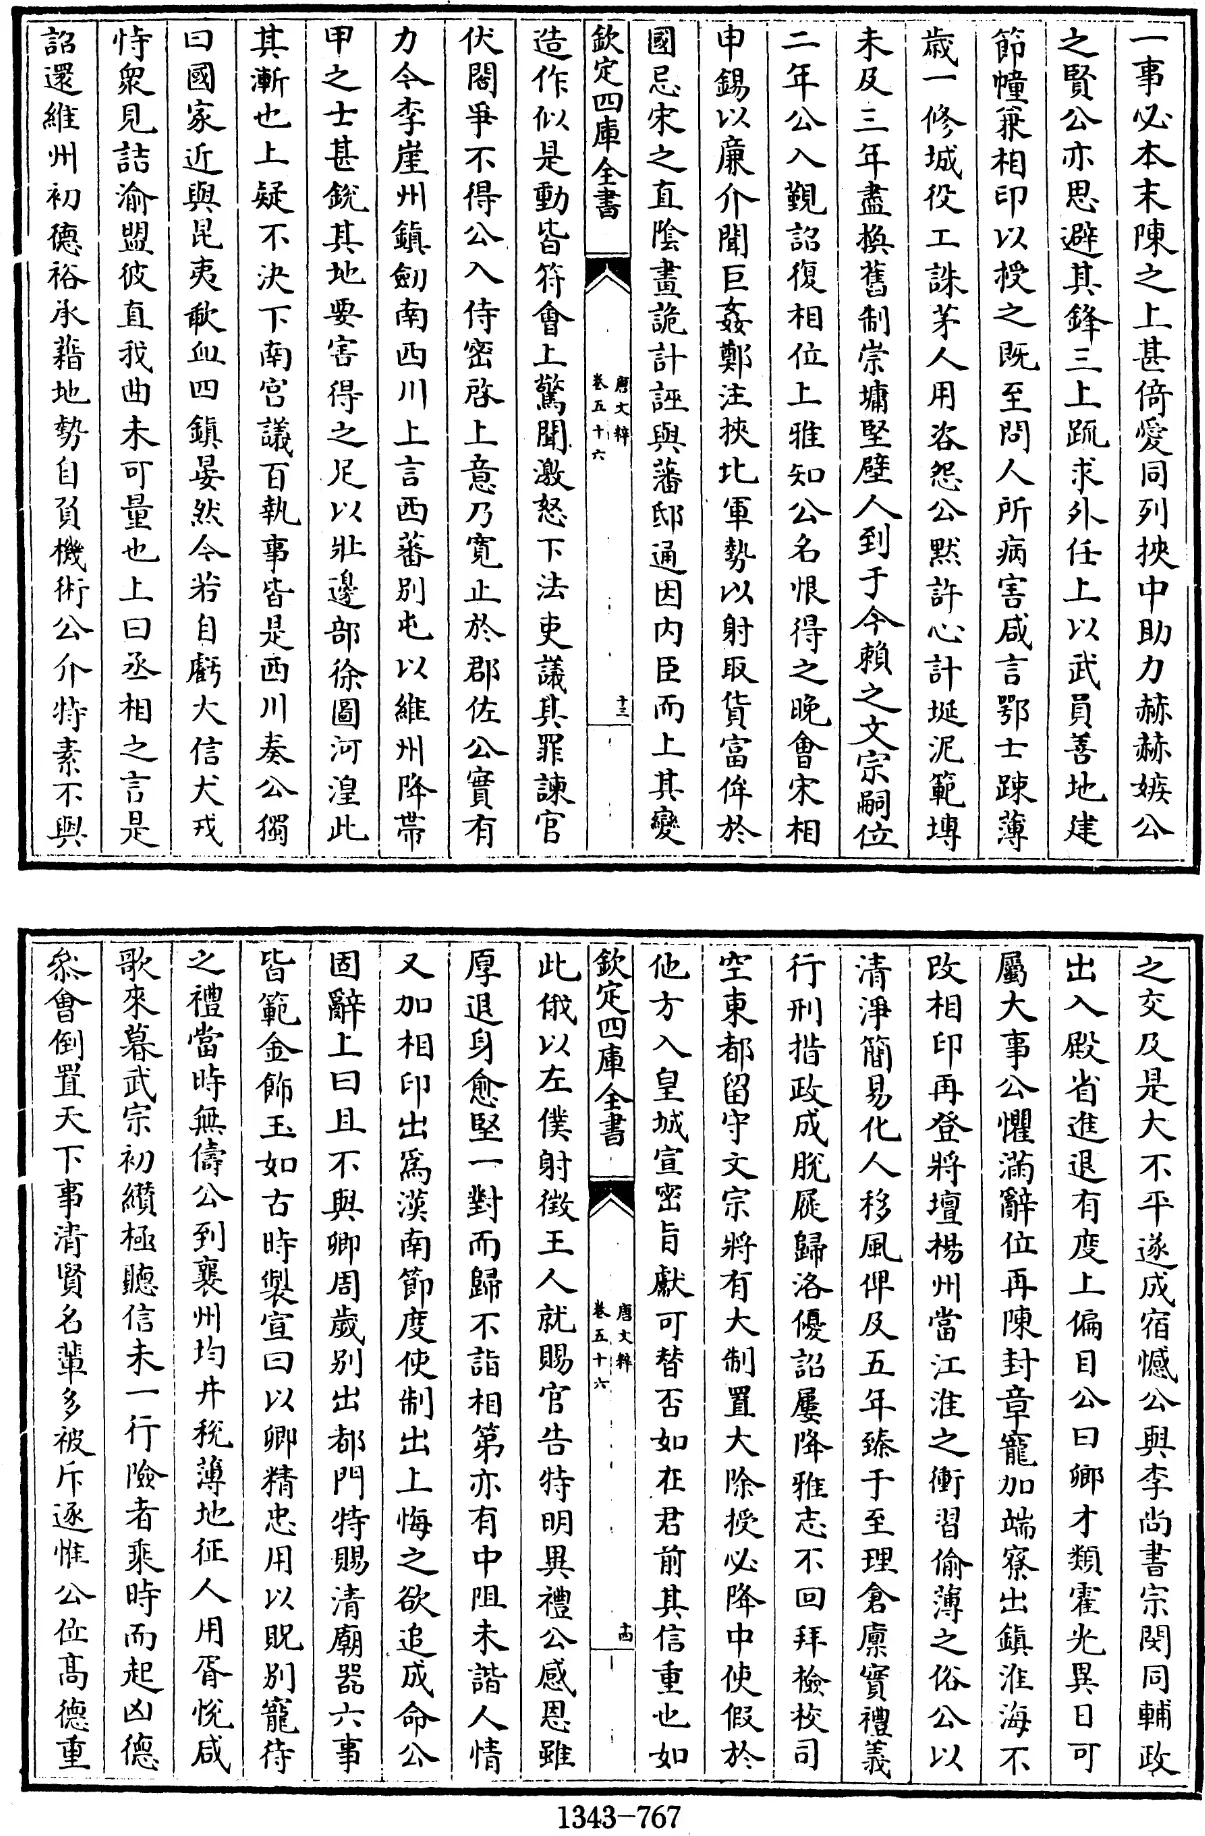 一事必本末陳之上甚倚愛同列挾中助力赫赫嫉公
之賢公亦思避其鋒三上疏求外任上以武員善地建
節幢兼相印以授之既至問人所病害咸言鄂士踈薄
歲一修城役工誅茅人用咨怨公默許心計埏泥範塼
未及三年盡換舊制崇墉堅壁人到于今賴之文宗嗣位
二年公入覲詔復相位上雅知公名恨得之晚會宋相
申錫以廉介聞巨姦鄭注挾北軍勢以射取貨富侔於
國忌宋之直陰畫詭計誣與藩邸通因内臣而上其變
欽定四庫全書
唐文粹
卷五十六
十三
造作似是動皆符會上驚聞激怒下法吏議其罪諫官
伏閤爭不得公入侍密啓上意乃寛止於郡佐公實有
力今李崖州鎭劒南西川上言西蕃别屯以維州降帶
甲之士甚銳其地要害得之足以壯邊部徐圖河湟此
其漸也上疑不決下南宫議百執事皆是西川奏公獨
曰國家近與昆夷歃血四鎭晏然今若自虧大信犬戎
恃衆見詰渝盟彼直我曲未可量也上曰丞相之言是
詔還維州初德裕承藉地勢自負機術公介特素不與
之交及是大不平遂成宿憾公與李尚書宗閔同輔政
出入殿省進退有度上偏目公曰卿才類霍光異日可
屬大事公懼滿辭位再陳封章寵加端寮出鎭淮海不
改相印再登將壇楊州當江淮之衝習偷薄之俗公以
清淨簡易化人移風俾及五年臻于至理倉廪實禮義
行刑措政成脫屣歸洛優詔屢降雅志不回拜檢校司
空東都留守文宗將有大制置大除授必降中使假於
他方入皇城宣密旨獻可替否如在君前其信重也如
欽定四庫全書
唐文粹
卷五十六
十四
此俄以左僕射徵王人就賜官告特明異禮公感恩雖
厚退身愈堅一對而歸不詣相第亦有中阻未諧人情
又加相印出爲漢南節度使制出上悔之欲追成命公
固辭上曰且不與卿周歲别出都門特賜清廟器六事
皆範金飾玉如古時製宣曰以卿精忠用以貺别寵待
之禮當時無儔公到襄州均井稅薄地征人用胥悅咸
歌來暮武宗初纘極聽信未一行險者乘時而起凶德
叅會倒置天下事清賢名輩多被斥逐惟公位高德重
1343-767